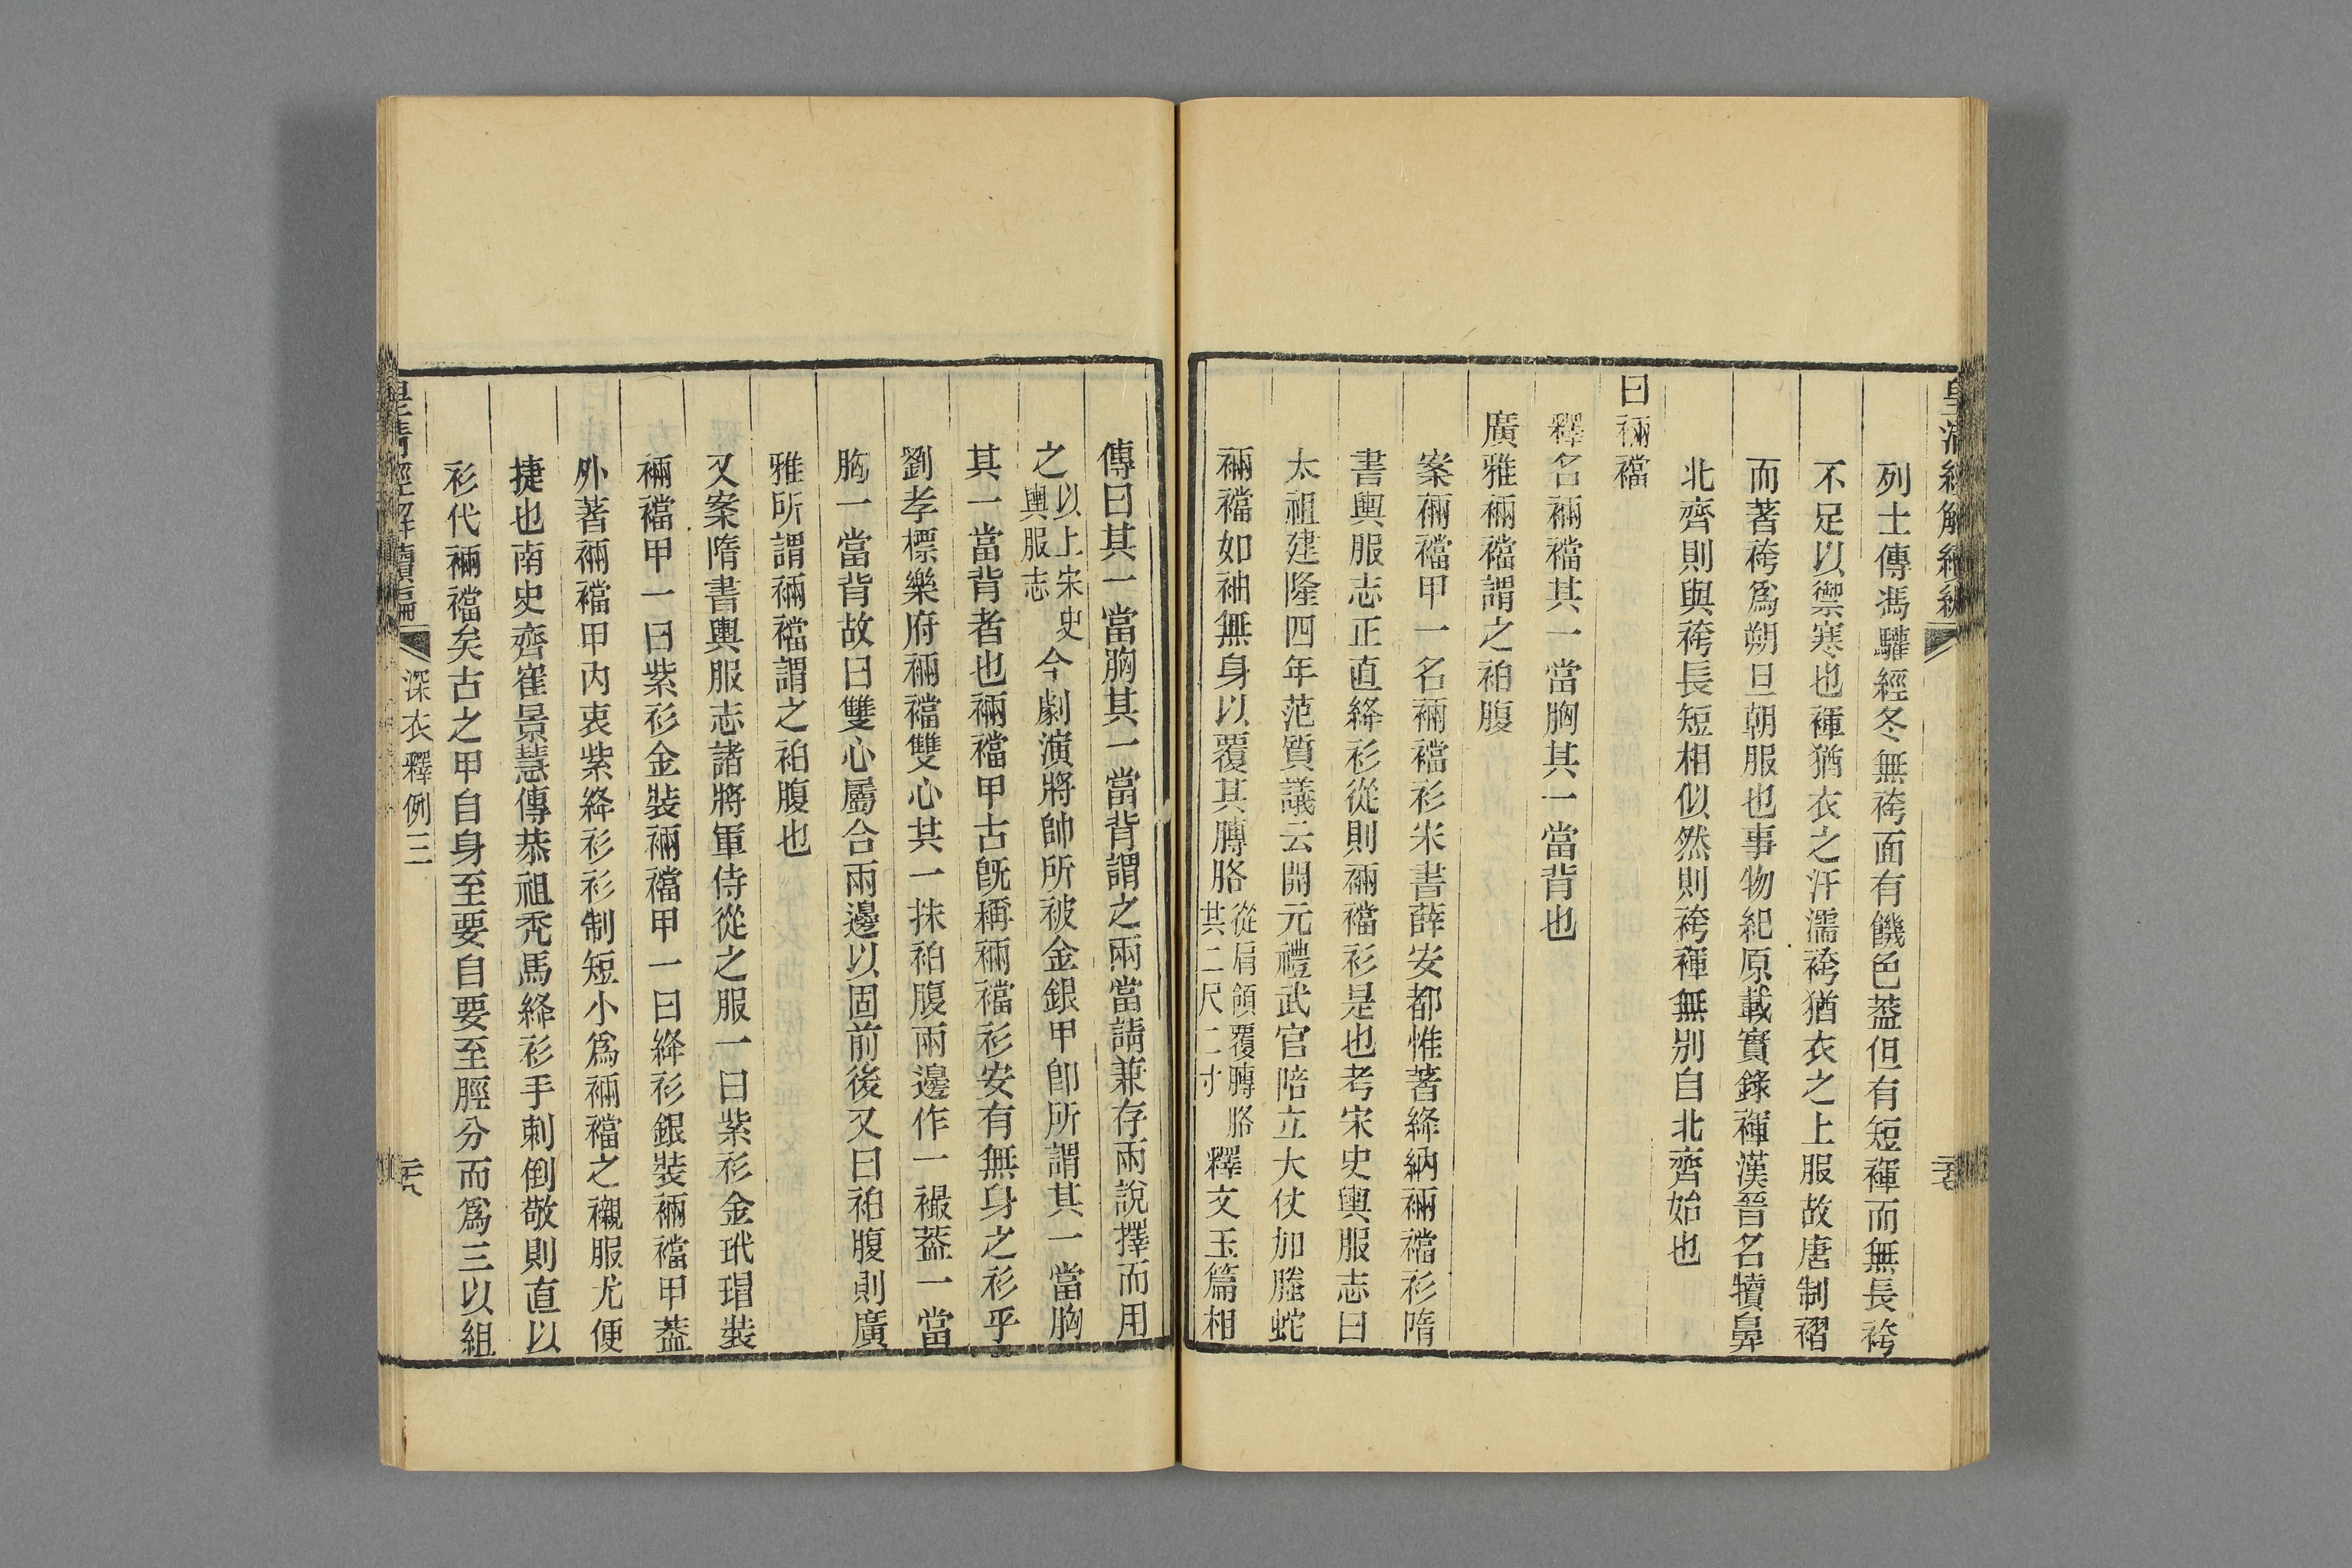 列士傳馮驩經冬無袴面有饑色葢但有短褌而無長袴
不足以禦寒也褌猶衣之汗濡袴猶衣之上服故唐制褶
而著袴爲朔旦朝服也事物紀原載實錄褌漢晉名犢鼻
北齊則與袴長短相似然則袴褌無別自北齊始也
曰裲襠
釋名裲襠其一當胸其一當背也
廣雅裲襠謂之袙腹
案裲襠甲一名裲襠衫宋書薛安都惟著絳納裲襠衫隋
書輿服志正直絳衫從則裲襠衫是也考宋史輿服志曰
太祖建隆四年范質議云開元禮武官陪立大仗加螣蛇
裲襠如袖無身以覆其膊胳從肩領覆膊胳其二尺二寸釋文玉篇相
傳曰其一當胸其一當背謂之兩當請兼存兩說擇而用
之以上宋史輿服志今劇演將帥所被金銀甲卽所謂其一當胸
其一當背者也裲襠甲古旣稱裲襠衫安有無身之衫乎
劉孝標樂府裲襠雙心其一抹袙腹兩邊作一襊葢一當
胸一當背故曰雙心屬合兩邊以固前後又曰袙腹則廣
雅所謂裲襠謂之袙腹也
又案隋書輿服志諸將軍侍從之服一曰紫衫金玳瑁裝
裲襠甲一曰紫衫金裝裲襠甲一曰絳衫銀裝裲襠甲葢
外著裲襠甲內衷紫絳衫衫制短小爲裲襠之襯服尤便
捷也南史齊崔景慧傳恭祖禿馬絳衫手刺倒敬則直以
衫代裲襠矣古之甲自身至要自要至脛分而爲三以組
皇清經解續編
深衣釋例三